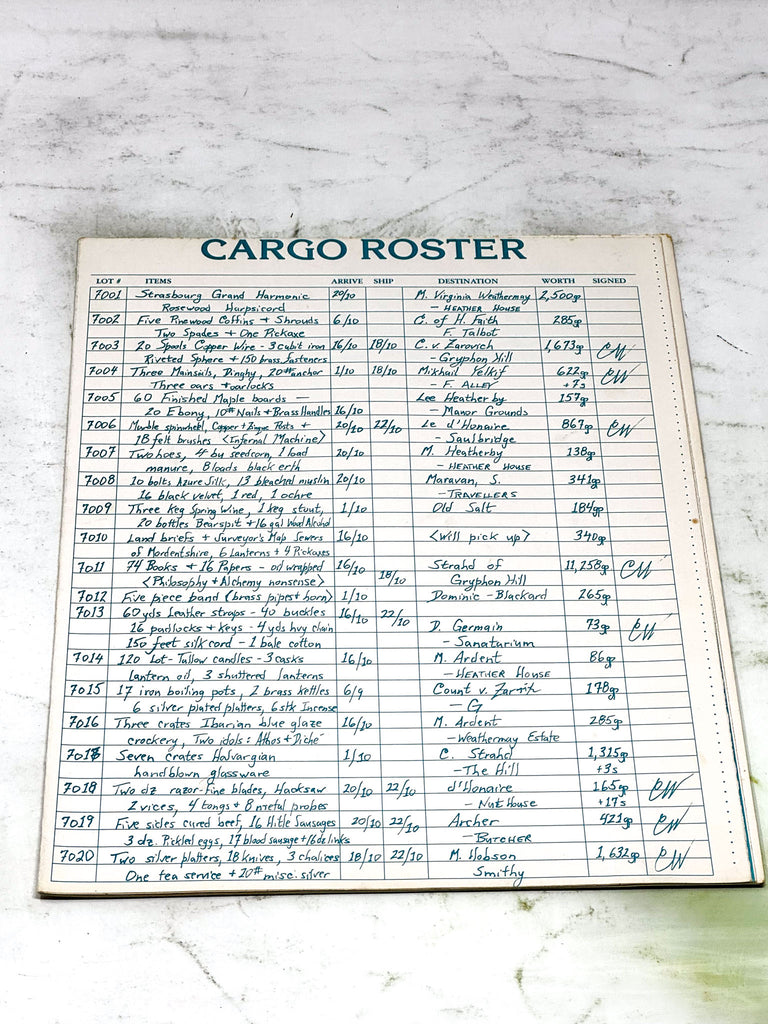 CARGO ROSTER
LOT # ITEMS ARRIVE SHIP DESTINATION WORTH SIGNED
7001 Strasbourg Grand Harmonic 20/10 M. Virginia Weathermay 2,500gp
Rosewood Harpsicord – HEATHER HOUSE
7002 Five Pinewood Coffins + Shrouds 6/10 C. of H. Faith 285gp
Two Spades + One Pickaxe F. Talbot
7003 20 Spools Copper Wire - 3 cubit iron 16/10 18/10 C. v. Zarovich 1,673gp CW
Riveted Sphere + 150 brass fasteners – Gryphon Hill
7004 Three Mainsails, Dinghy, 20# anchor 1/10 18/10 Mikhail Yelkif 622gp CW
Three oars + oarlocks – F. ALLEY +7s
7005 60 Finished Maple boards — Lee Heatherby 157gp
20 Ebony, 10# Nails + Brass Handles 16/10 – Manor Grounds
7006 Marble spinwheel, Copper + Zinque Posts + 20/10 22/10 Le d'Honaire 867gp CW
18 felt brushes <Infernal Machine> – Saulbridge
7007 Two hoes, 4 bu seedcorn, 1 load 20/10 M. Heatherby 138gp
manure, 8 loads black erth – HEATHER HOUSE
7008 10 bolts Azure Silk, 13 bleached muslin 20/10 Maravan, S. 341gp
16 black velvet, 1 red, 1 ochre – TRAVELLERS
7009 Three keg Spring Wine, 1 keg stout, 1/10 Old Salt 184gp
20 bottles Bearspit + 16 gal Wood Alcohol
7010 Land briefs + Surveyor's Map Sewers 16/10 <will pick up> 340gp
of Mordentshire, 6 Lanterns + 4 Pickaxes
7011 74 Books + 16 Papers - oil wrapped 16/10 18/10 Strahd of 11,258gp CW
<Philosophy + Alchemy nonsense> Gryphon Hill
7012 Five piece band (brass pipes + horn) 1/10 Dominic - Blackard 265gp
7013 60 yds Leather straps - 40 buckles 16/10 22/10
16 padlocks + Keys - 4 yds hvy chain D. Germain 73gp CW
150 feet silk cord - 1 bale cotton – Sanatarium
7014 120 Lot - Tallow candles - 3 casks 16/10 M. Ardent 86gp
Lantern oil, 3 shuttered lanterns – HEATHER HOUSE
7015 17 iron boiling pots, 2 brass kettles 6/9 Count v. 178gp
6 silver plated platters, 6 stk Incense – G
7016 Three crates Ibarian blue glaze 16/10 M. Ardent 285gp
crockery, Two idols: Athos + Diché – Weathermay Estate
7017 Seven crates Halvargian 1/10 C. Strahd 1,315gp
handblown glassware – The Hill +3s
7018 Two dz razor-fine blades, Hacksaw 20/10 22/10 d'Honaire 165gp CW
2 vices, 4 tongs + 8 metal probes – Nut House +17s
7019 Five sides cured beef, 16 Hitle Sausages 20/10 22/10 Archer 421gp CW
3 dz. Pickled eggs, 17 blood sausage + 16 dz links – BUTCHER
7020 Two silver platters, 18 knives, 3 chalices 18/10 22/10 M. Hobson 1,632gp CW
One tea service + 20# misc. silver Smithy